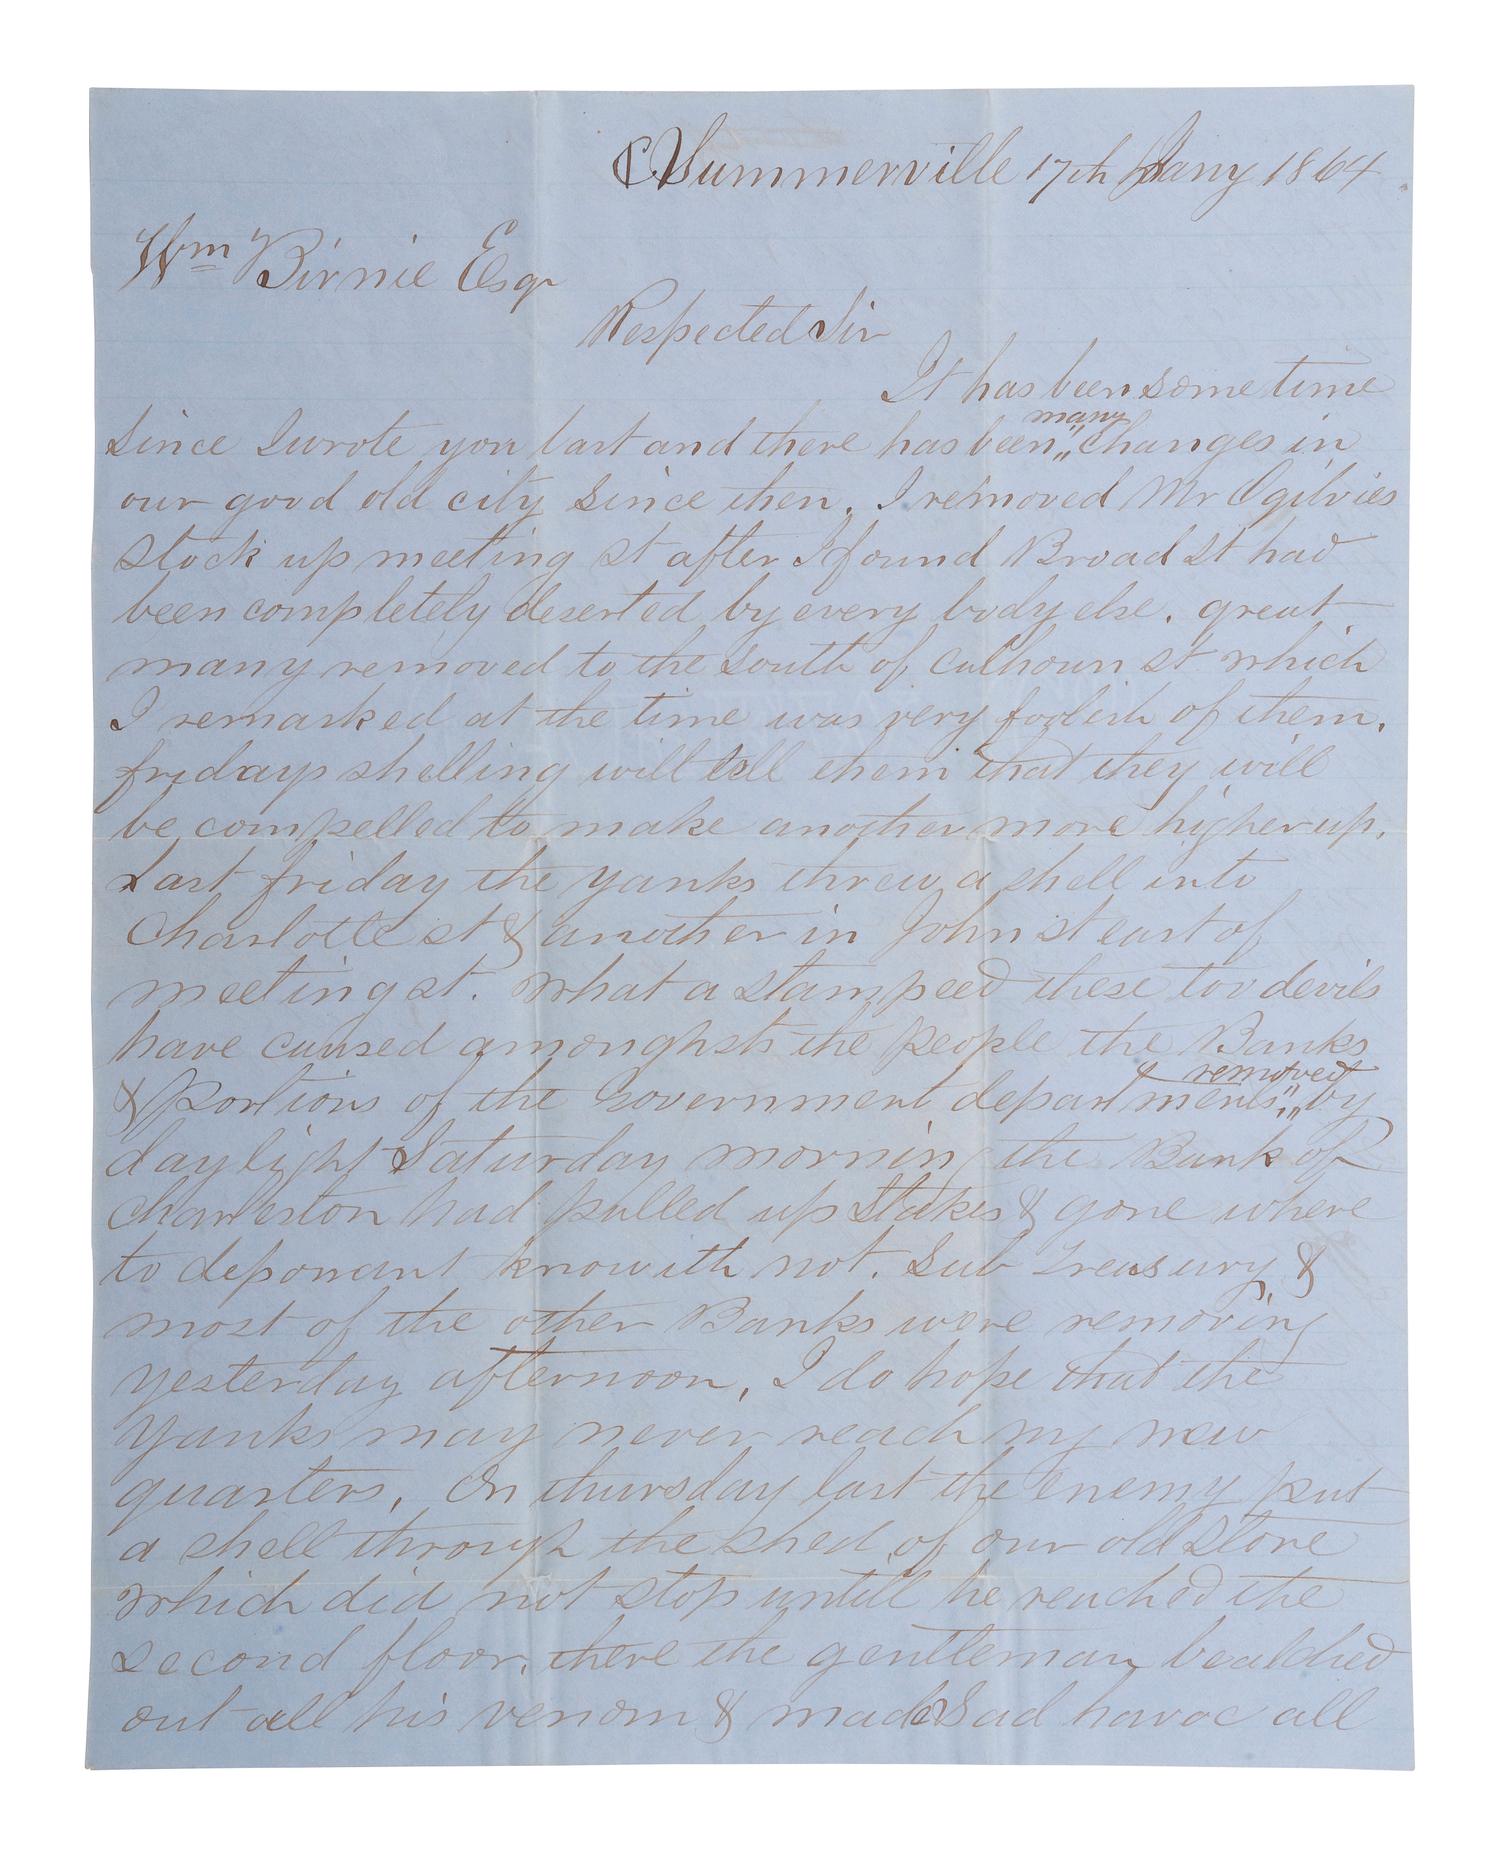 Summerville 17th Jany 1864
Wm Birnie Esqr
Respected Sir
It has been some time
many
since I wrote you last and there has been „ changes in
our good old city since then. I removed Mr Ogilvies
stock up meeting st after I found Broad St had
been completely deserted by every body else. great
many removed to the south of Calhoun st which
I remarked at the time was very foolish of them.
fridays shelling will tell them that they will
be compelled to make another more higher up.
Last friday the yanks threw a shell into
Charlotte st & another in John st east of
meeting st. What a stampeed these too devils
have caused amonghsts the people the Banks
removed
& portions of the Government departments „ by
day light Saturday morning the Bank of
Charleston had pulled up Stakes & gone where
to deponant knowith not. Sub Treasury &
most of the other Banks were removing
yesterday afternoon, I do hope that the
Yanks may never reach my new
quarters. On thursday last the enemy put
a shell through the shed of our old Store
which did not stop untill he reached the
second floor. there the gentleman bealched
out all his venom & made Sad havoc all